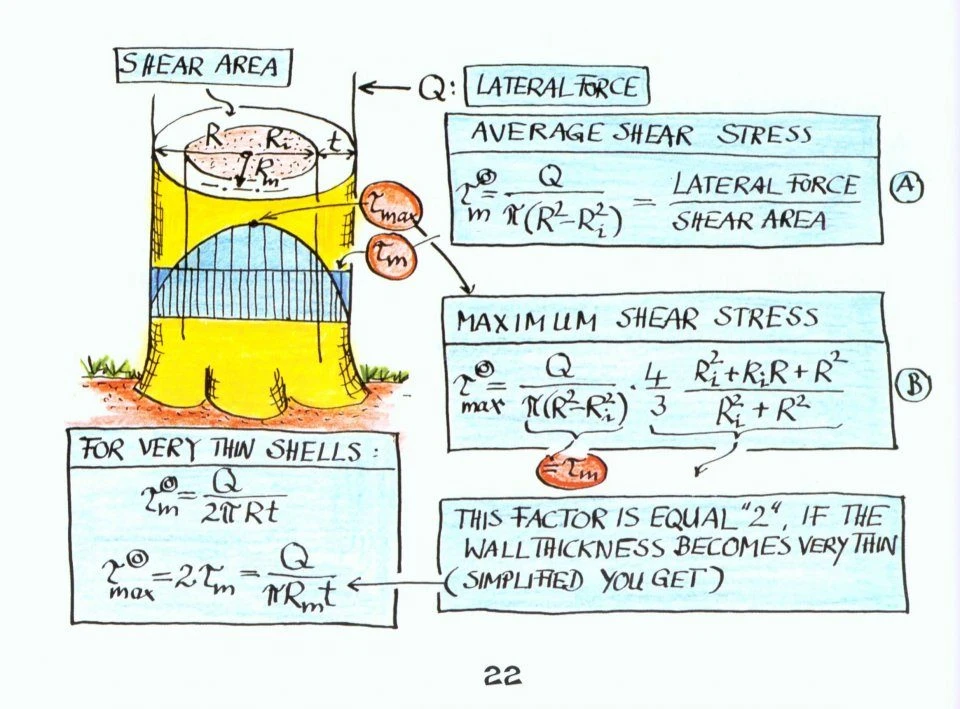 SHEAR AREA
Q: LATERAL FORCE
R Ri t
Rm
AVERAGE SHEAR STRESS
τm = Q / π(R²-Ri²) = LATERAL FORCE / SHEAR AREA (A)
τmax
τm
MAXIMUM SHEAR STRESS
τmax = Q / π(R²-Ri²) · 4/3 Ri²+RiR+R² / Ri²+R² (B)
= τm
FOR VERY THIN SHELLS:
τm = Q / 2πRt
τmax = 2τm = Q / πRmt
THIS FACTOR IS EQUAL "2", IF THE
WALL THICKNESS BECOMES VERY THIN
(SIMPLIFIED YOU GET)
22